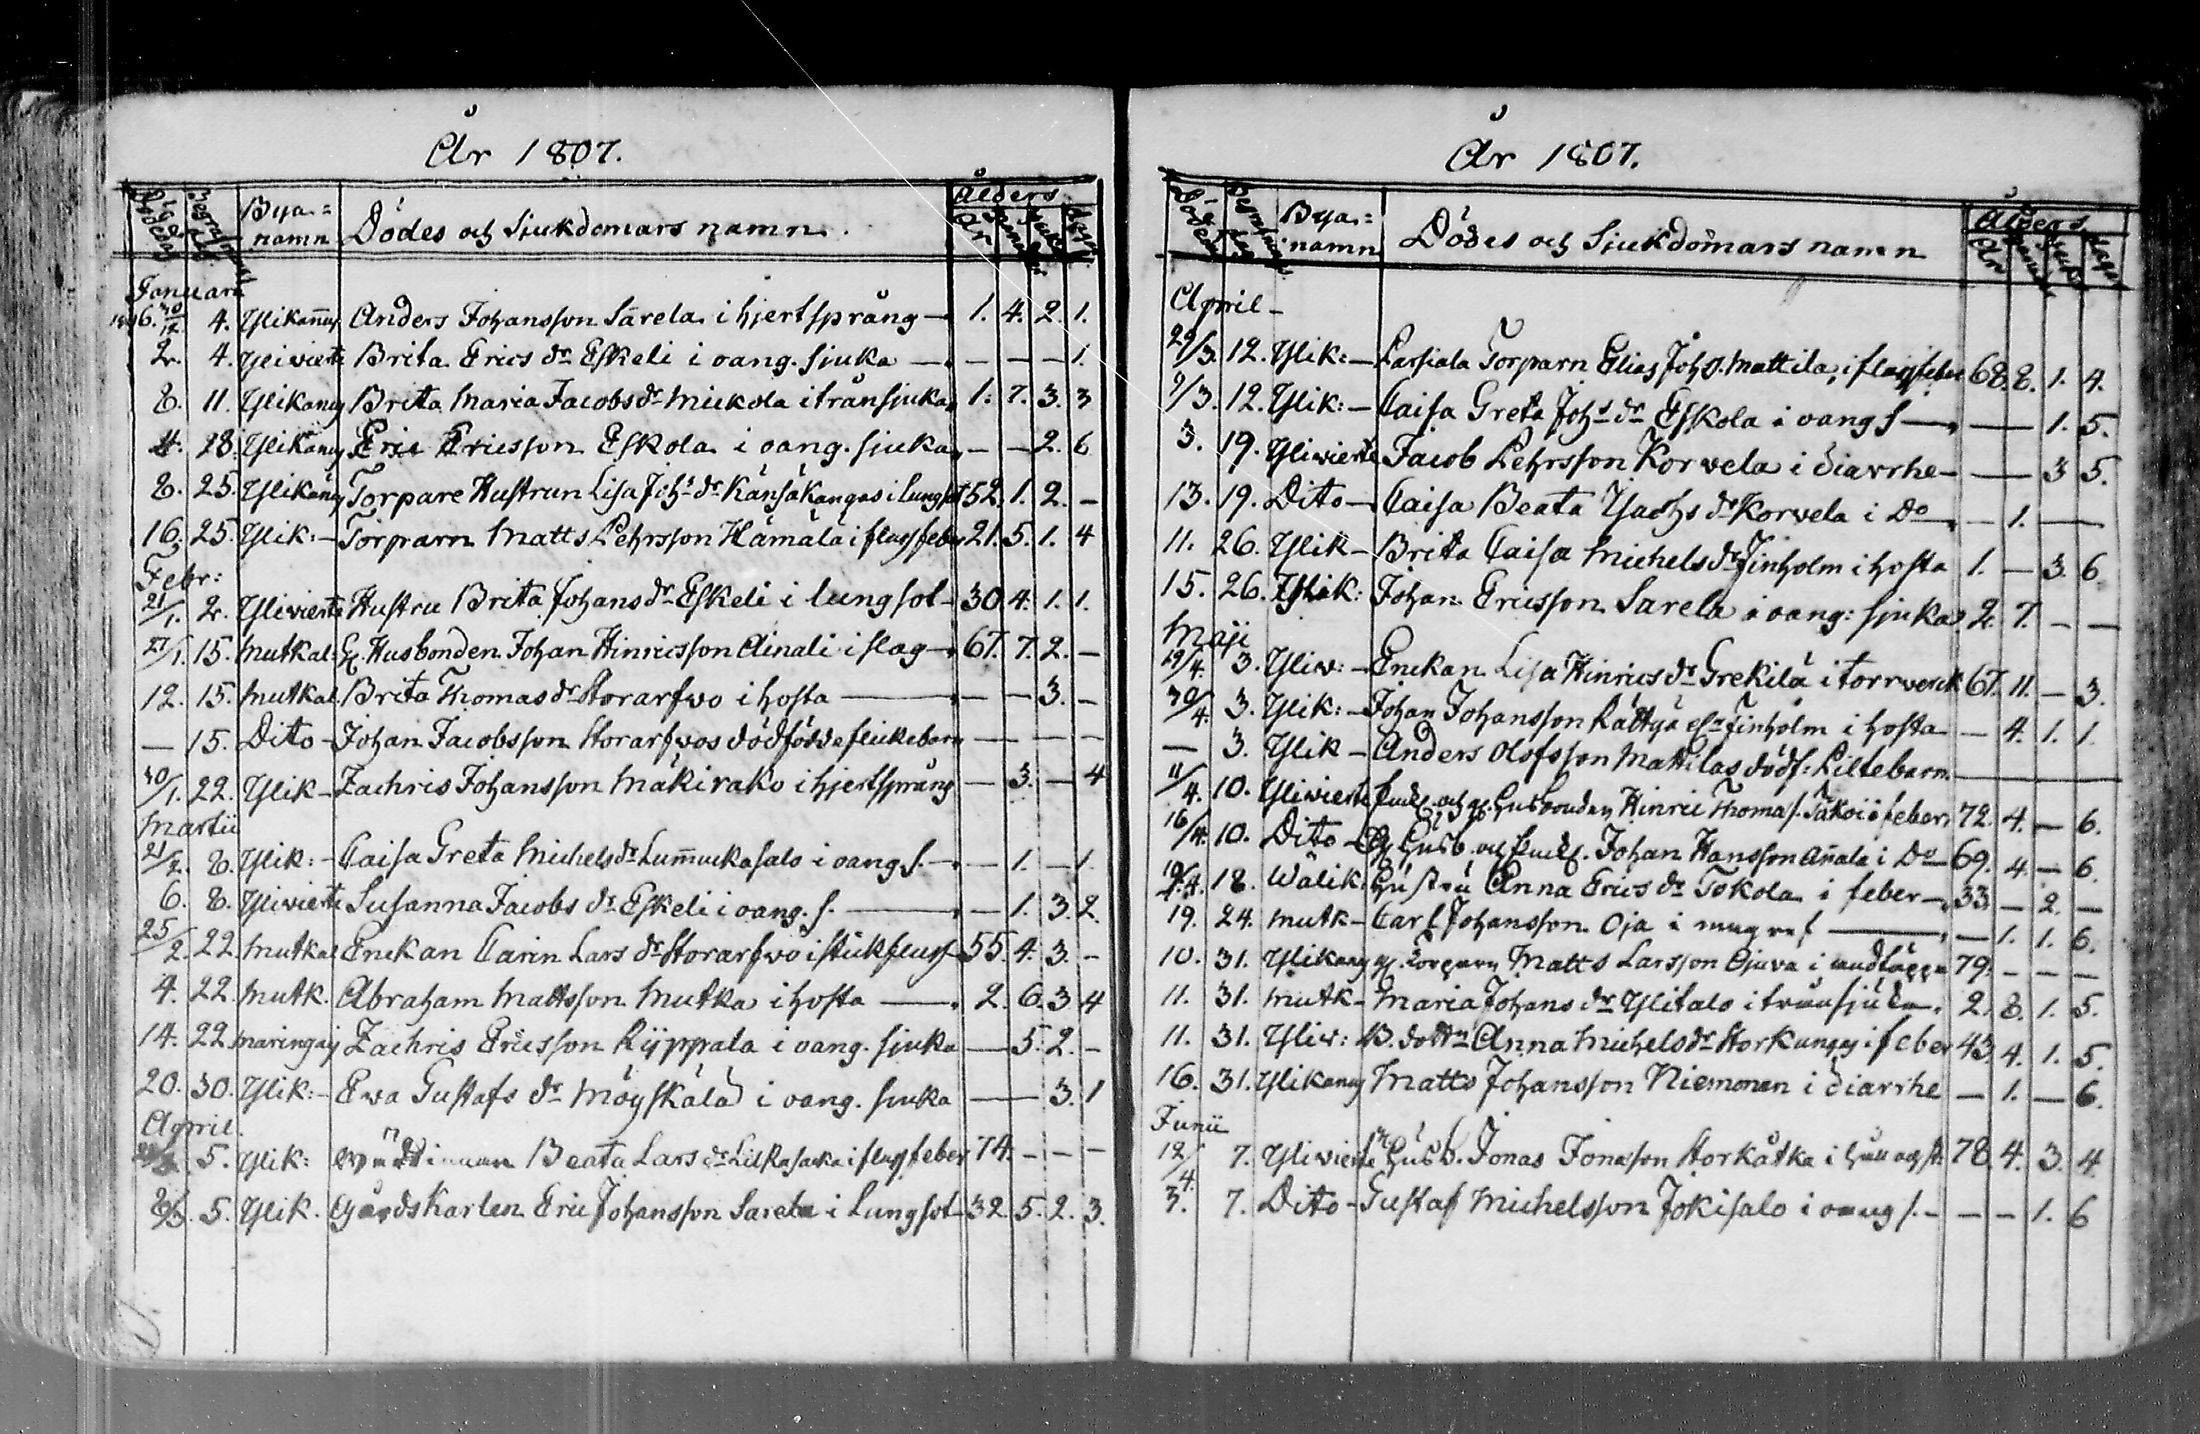 År 1807.
Döde dag Begrafn. dag Bya= namn Dödes och Sjukdomars namn. Ålders År Mån: Veckor dagar
Januarii
1806. 30/12 4. Ylikañus Anders Johansson Sarela i hjertsprång — 1. 4. 2. 1.
2. 4. Ylivieste Brita Erics dr. Eskeli i oang. sjuka — — — — 1.
8. 11. Ylikanus Brita Maria Jacobs dr. Mickola i trånsjuka 1. 7. 3. 3
4. 18. Ylikanus Eric Ericsson Eskola i oang. sjuka — — 2. 6
8. 25. Ylikanus Torpare Hustrun Lisa Johs dr. Känsäkangas i lungsot 52. 1. 2. –
16. 25. Ylik: – Torparn Matts Pehrsson Hämälä i flussfeber 21. 5. 1. 4
Febr:
21/1. 2. Ylivieste Hustru Brita Johans dr. Eskeli i lungsot – 30. 4. 1. 1.
27/1. 15. Mutkal: Husbonden Johan Hinricsson Ainali i slag – 67. 7. 2. –
12. 15. Mutkal Brita Thomas dr. Storarfwo i hosta — — — 3. –
— 15. Dito – Johan Jacobsson Storarfvos dödfödde flickebarn — — — —
30/1. 22. Ylik – Zachris Johansson Mäkirako i hjertsprång — 3. — 4
Martii
21/2. 8. Ylik: – Caisa Greta Michels dr. Lummukasalo i oang. s. — — 1. — 1.
6. 8. Ylivieste Susanna Jacobs dr. Eskeli i oang. s. — — 1. 3. 2.
25/2. 22 Mutkal Enckan Carin Lars dr. Storarfvo i stickfluss – 55. 4. 3. –
4. 22. Mutk. Abraham Mattsson Mutka i hosta — 2. 6. 3 4
14. 22. Zachris Ericsson Ryppala i oang. sjuka — 5. 2. –
20. 30. Ylik: – Ewa Gustafs dr. Möyskälä i oang. sjuka — — 3. 1
April.
5. Ylik: Beata Lars dr. i flussfeber 74. – – –
8/3. 5. Ylik. Gårdskarlen Eric Johansson Sarela i Lungsot – 32. 5. 2. 3.
År 1807.
Döde dag Begrafn. dag Bya= namn Dödes och Sjukdomars namn Ålders År Mån: Veckor dagar
April –
29/3. 12. Ylik: – Torparn Elias Johs. Mattila, i flussfeber 68. 8. 1. 4.
9/3. 12. Ylik: – Caisa Greta Johs dr. Eskola i oang s — — 1. 5.
3. 19. Ylivieste Jacob Pehrsson Korvela i diarrhe – — 3 5.
13. 19. Dito – Caisa Beata Isachs dr. Korvela i Do — – 1. —
11. 26. Ylik – Brita Caisa Michels dr. Finholm i hosta 1. — 3. 6.
15. 26. Ylik: Johan Ericsson Sarela i oang: sjuka. 2. 7. – –
Maji
19/4. 3. Yliv: – Enckan Lisa Hinrics dr. Grekilä i torrverk 67. 11. – 3.
30/4. 3. Ylik: – Johan Johansson Rättyä Finholm i hosta – 4. 1. 1.
— 3. Ylik – Anders Olofsson Mattilas dödf: Piltebarn —
11/4. 10. Ylivieste Husbonden Hinric Thomas. i feber 72. 4. – 6.
16/4. 10. Dito – Husb. Johan Hansson Añala i Do – 69. 4. – 6.
18. Wälik. Hustru Anna Erics dr. Tokola i feber – 33. – 2. –
19. 24. Mutk – Carl Johansson Oja i magref — — 1. 1. 6.
10. 31. Ylikanus Torparn Matts Larsson Ojuva i andtäppa 79. – – –
11. 31. Mutk – Maria Johans dr. Ylitalo i trånsjuka. 2. 8. 1. 5.
11. 31. Yliv: B. Anna Michels dr. Storkangas i feber 43. 4. 1. 5.
16. 31. Ylikanus Matts Johansson Niemonen i diarrhe – 1. – 6.
Junii
12/4 7. Ylivieste Husb. Jonas Jonasson Storkåtka i håll och st. 78. 4. 3. 4
3. 7. Dito – Gustaf Michelsson Jokisalo i oang s. – – – 1. 6